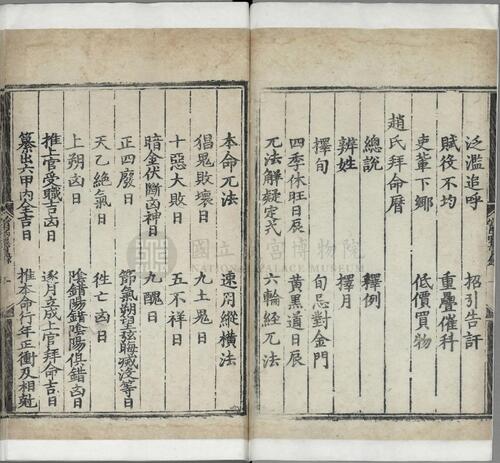 泛濫追呼　招引告訐
賦役不均　重疊催科
吏輩下鄉　低價買物
趙氏拜命曆
總說　釋例
辨姓　擇月
擇旬　旬忌對金門
四季休旺日辰　黃黑道日辰
兀法解疑定式　六輪經兀法
本命兀法　速閉縱橫法
猖鬼敗壞日　九土鬼日
十惡大敗日　五不祥日
暗金伏斷凶神日　九醜日
正四廢日　節氣朔望弦晦滅沒等日
天乙絕氣日　徃亡凶日
上朔凶日　陰錯陽錯陰陽俱錯凶日
推上官受職吉凶日　逐月立成上官拜命吉日
纂出六甲內全吉日　推本命行年正衝及相尅
國立故宮博物院